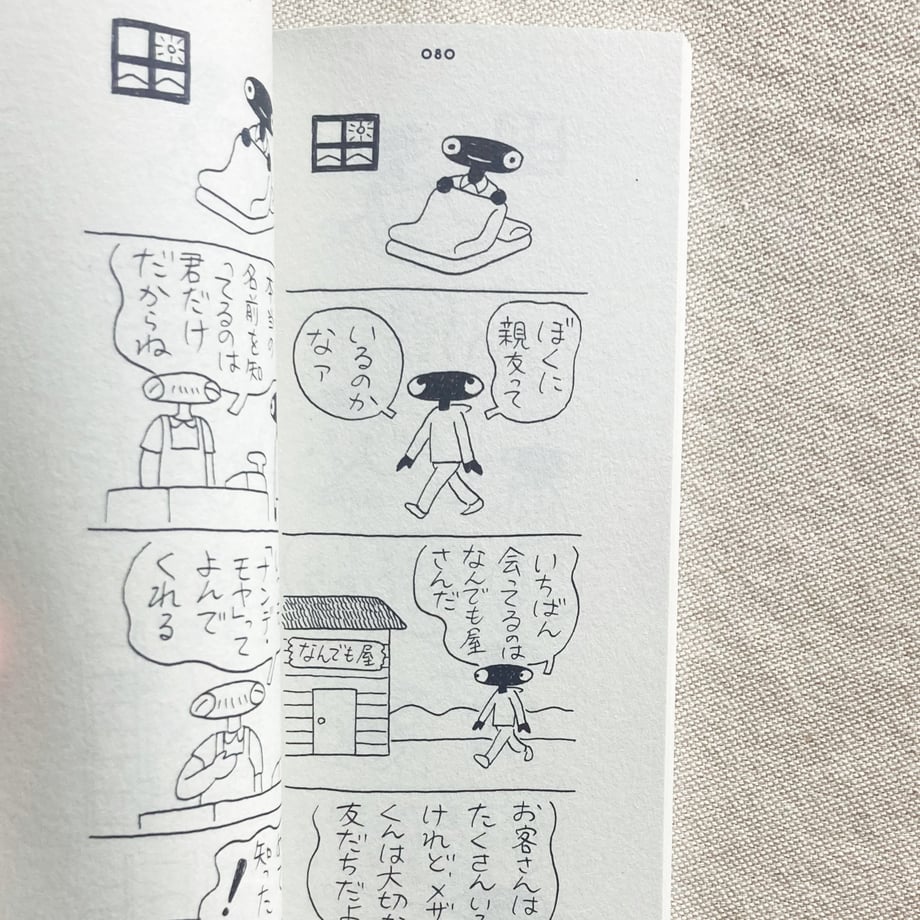 080
ぼくに
親友って
いるのか
なァ
いちばん
会ってるのは
なんでも屋
さんだ
なんでも屋
お客さんは
たくさんいる
けれど、メザ
くんは大切
友だちだよ
本当の
名前を知
ってるのは
君だけ
だからね
ナンデ・
モヤ」って
よんで
くれる
知った
！